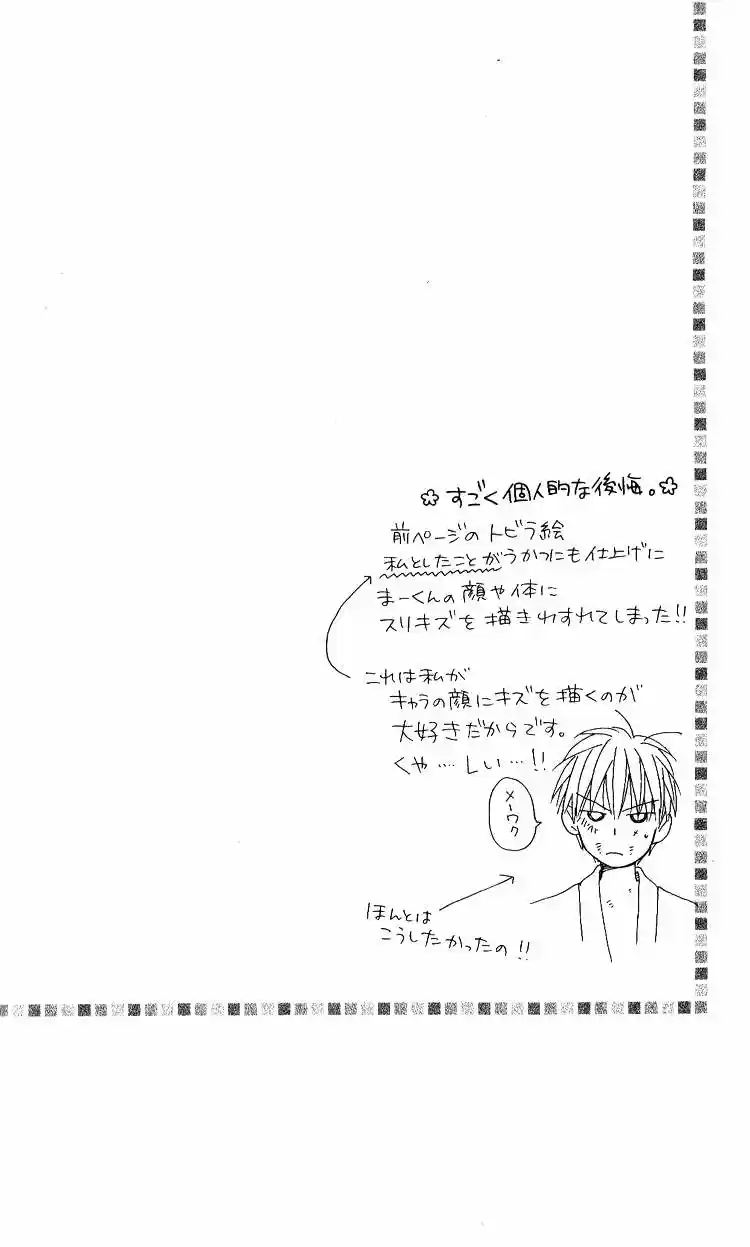 ✿すごく個人的な後悔。✿
前ページのトビラ絵
私としたことがうかつにも仕上げに
まーくんの顔や体に
スリキズを描きわすれてしまった!!
これは私が
キャラの顔にキズを描くのが
大好きだからです。
くや……しい…!!
メーワク
ほんとは
こうしたかったの!!